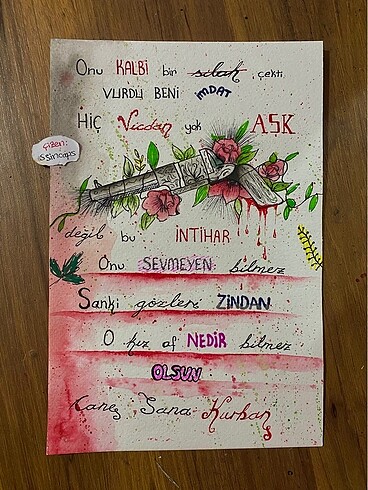 Onu KALBİ bir silah çekti
VURDU BENİ İMDAT
HİÇ Vicdan yok AŞK
çizen:
ssinaps
değil bu İNTİHAR
Onu SEVMEYEN bilmez
Sanki gözleri ZİNDAN
O kız af NEDİR bilmez
OLSUN
Caneş Sana Kurban